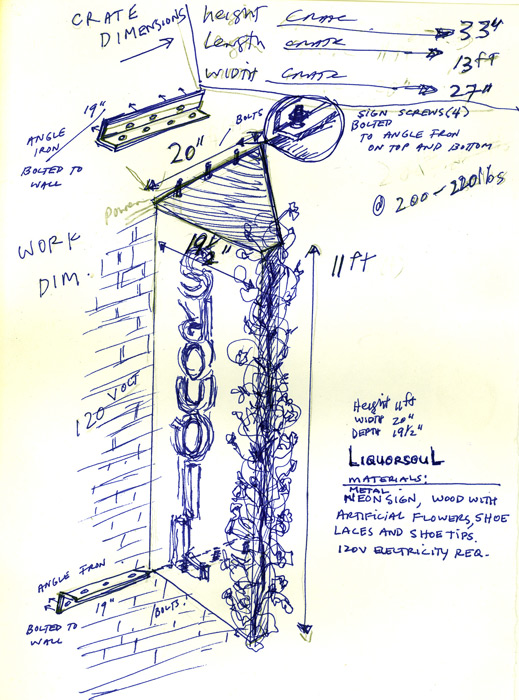 CRATE DIMENSIONS
height CRATE 33"
length CRATE 13ft
WIDTH CRATE 27"
19"
ANGLE IRON
BOLTED TO WALL
BOLTS
SIGN SCREWS(4)
BOLTED
TO ANGLE IRON
ON TOP AND BOTTOM
@ 200-220lbs
20"
Power
WORK
DIM.
19 1/2"
11ft
120 VOLT
Height 11ft
WIDTH 20"
DEPTH 19 1/2"
LIQUORSOUL
MATERIALS:
METAL
NEON SIGN, WOOD WITH
ARTIFICIAL FLOWERS, SHOE
LACES AND SHOE TIPS.
120V ELECTRICITY REQ.
ANGLE IRON
19"
BOLTS.
BOLTED TO
WALL